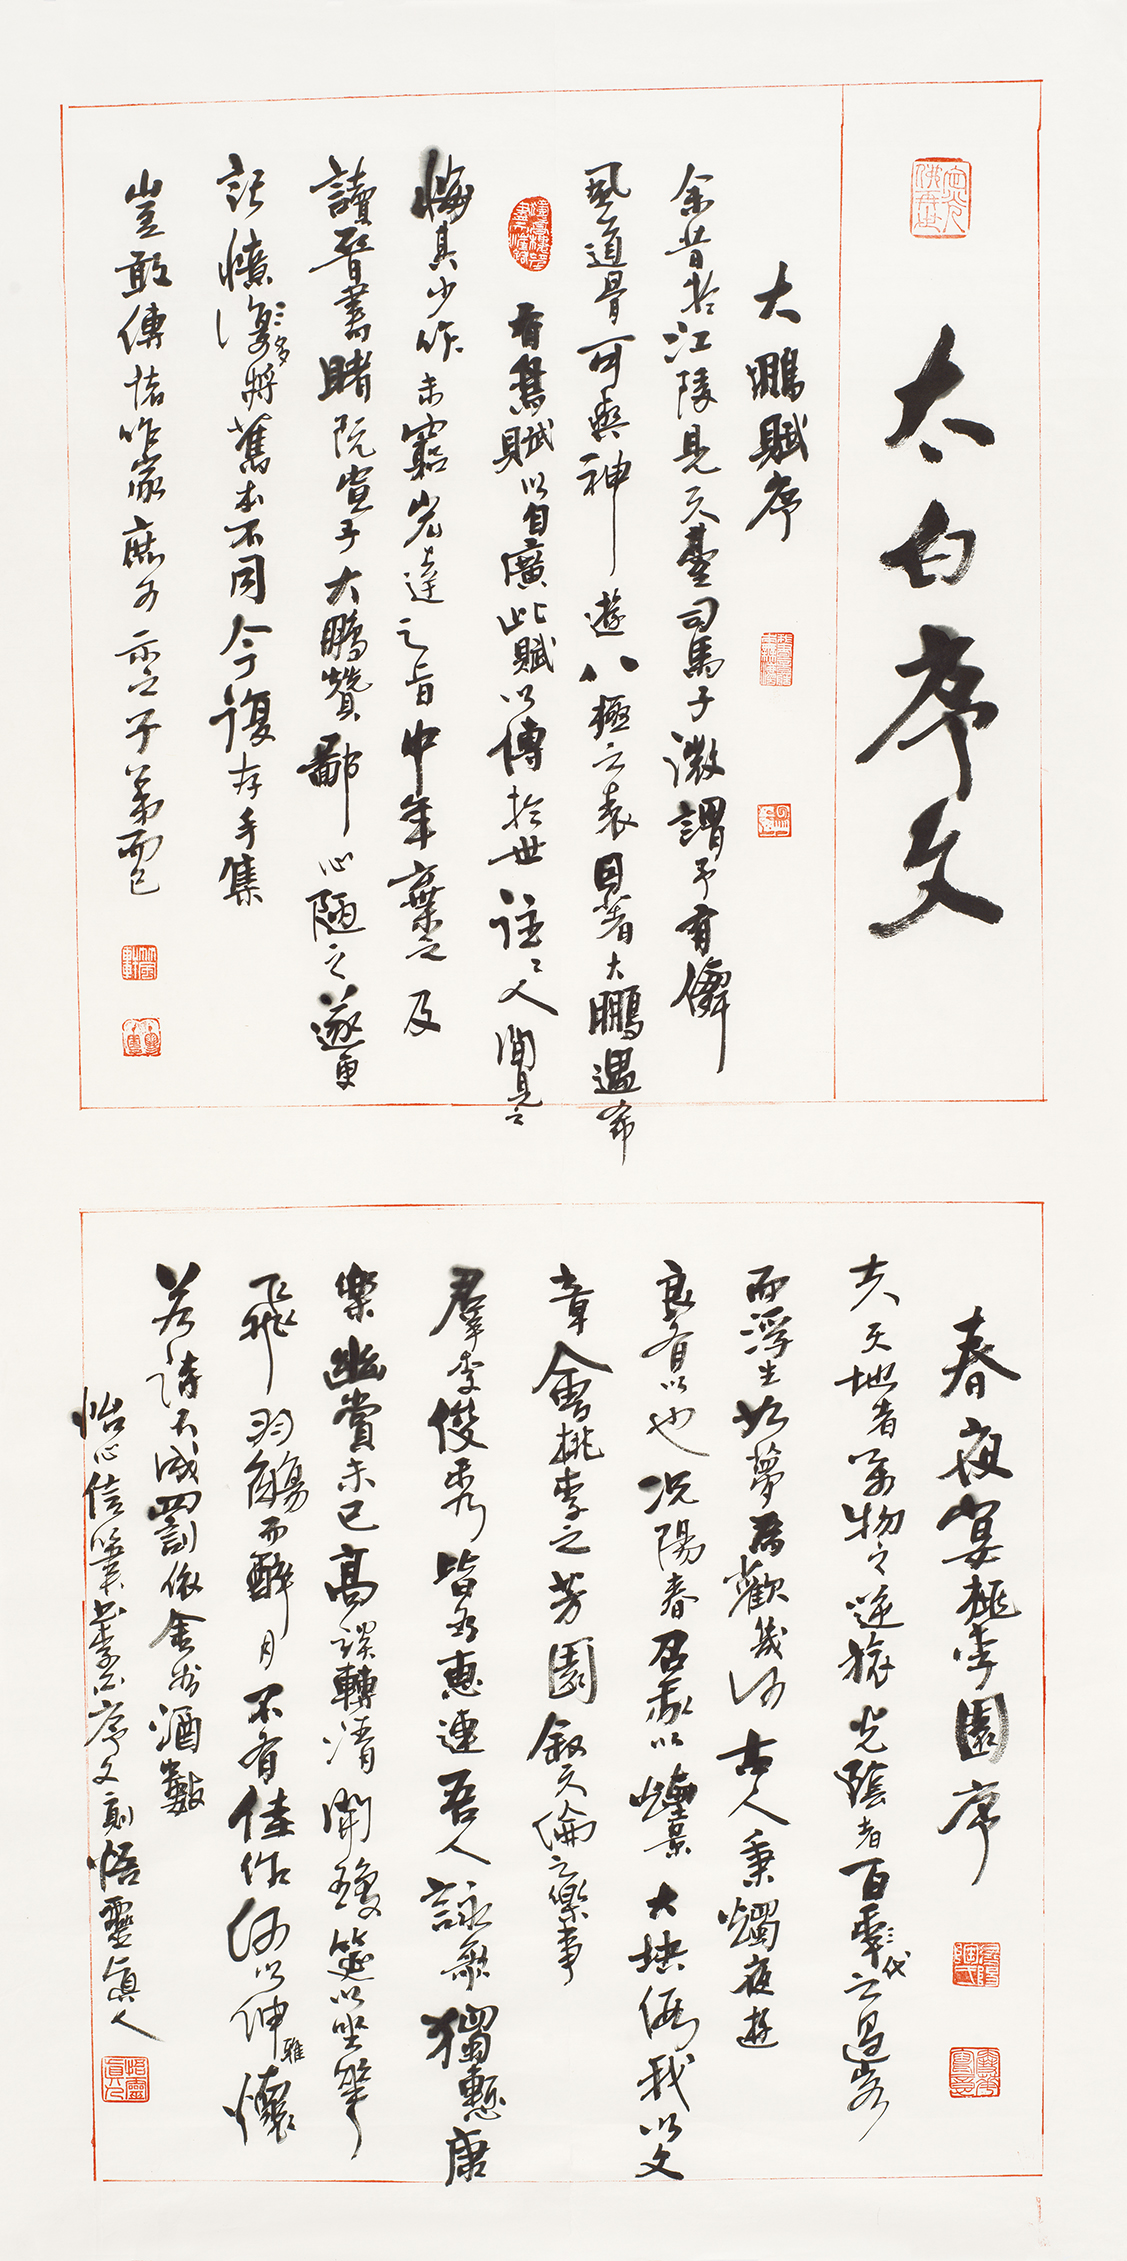 太白序文
大鵬賦序
余昔於江陵見天臺司馬子微謂予有僊
風道骨可與神遊八極之表因著大鵬遇希
有鳥賦以自廣此賦以傳於世往〻人間見之
悔其少作未窮宏達之旨中年棄之及
讀晉書睹阮宣子大鵬贊鄙心陋之遂更
記憶多將舊本不同今復存手集
豈敢傳諸作家庶可示之子弟而已
春夜宴桃李園序
夫天地者萬物之逆旅光陰者百代之過客
而浮生如夢為歡幾何古人秉燭夜遊
良有以也況陽春召我以煙景大塊假我以文
章會桃李之芳園敘天倫之樂事
羣季俊秀皆為惠連吾人詠歌獨慙康
樂幽賞未已高談轉清開瓊筵以坐華
飛羽觴而醉月不有佳作何以伸雅懷
若詩不成罰依金谷酒數
怡心信筆書李白序文刻悟靈真人
悟靈真人